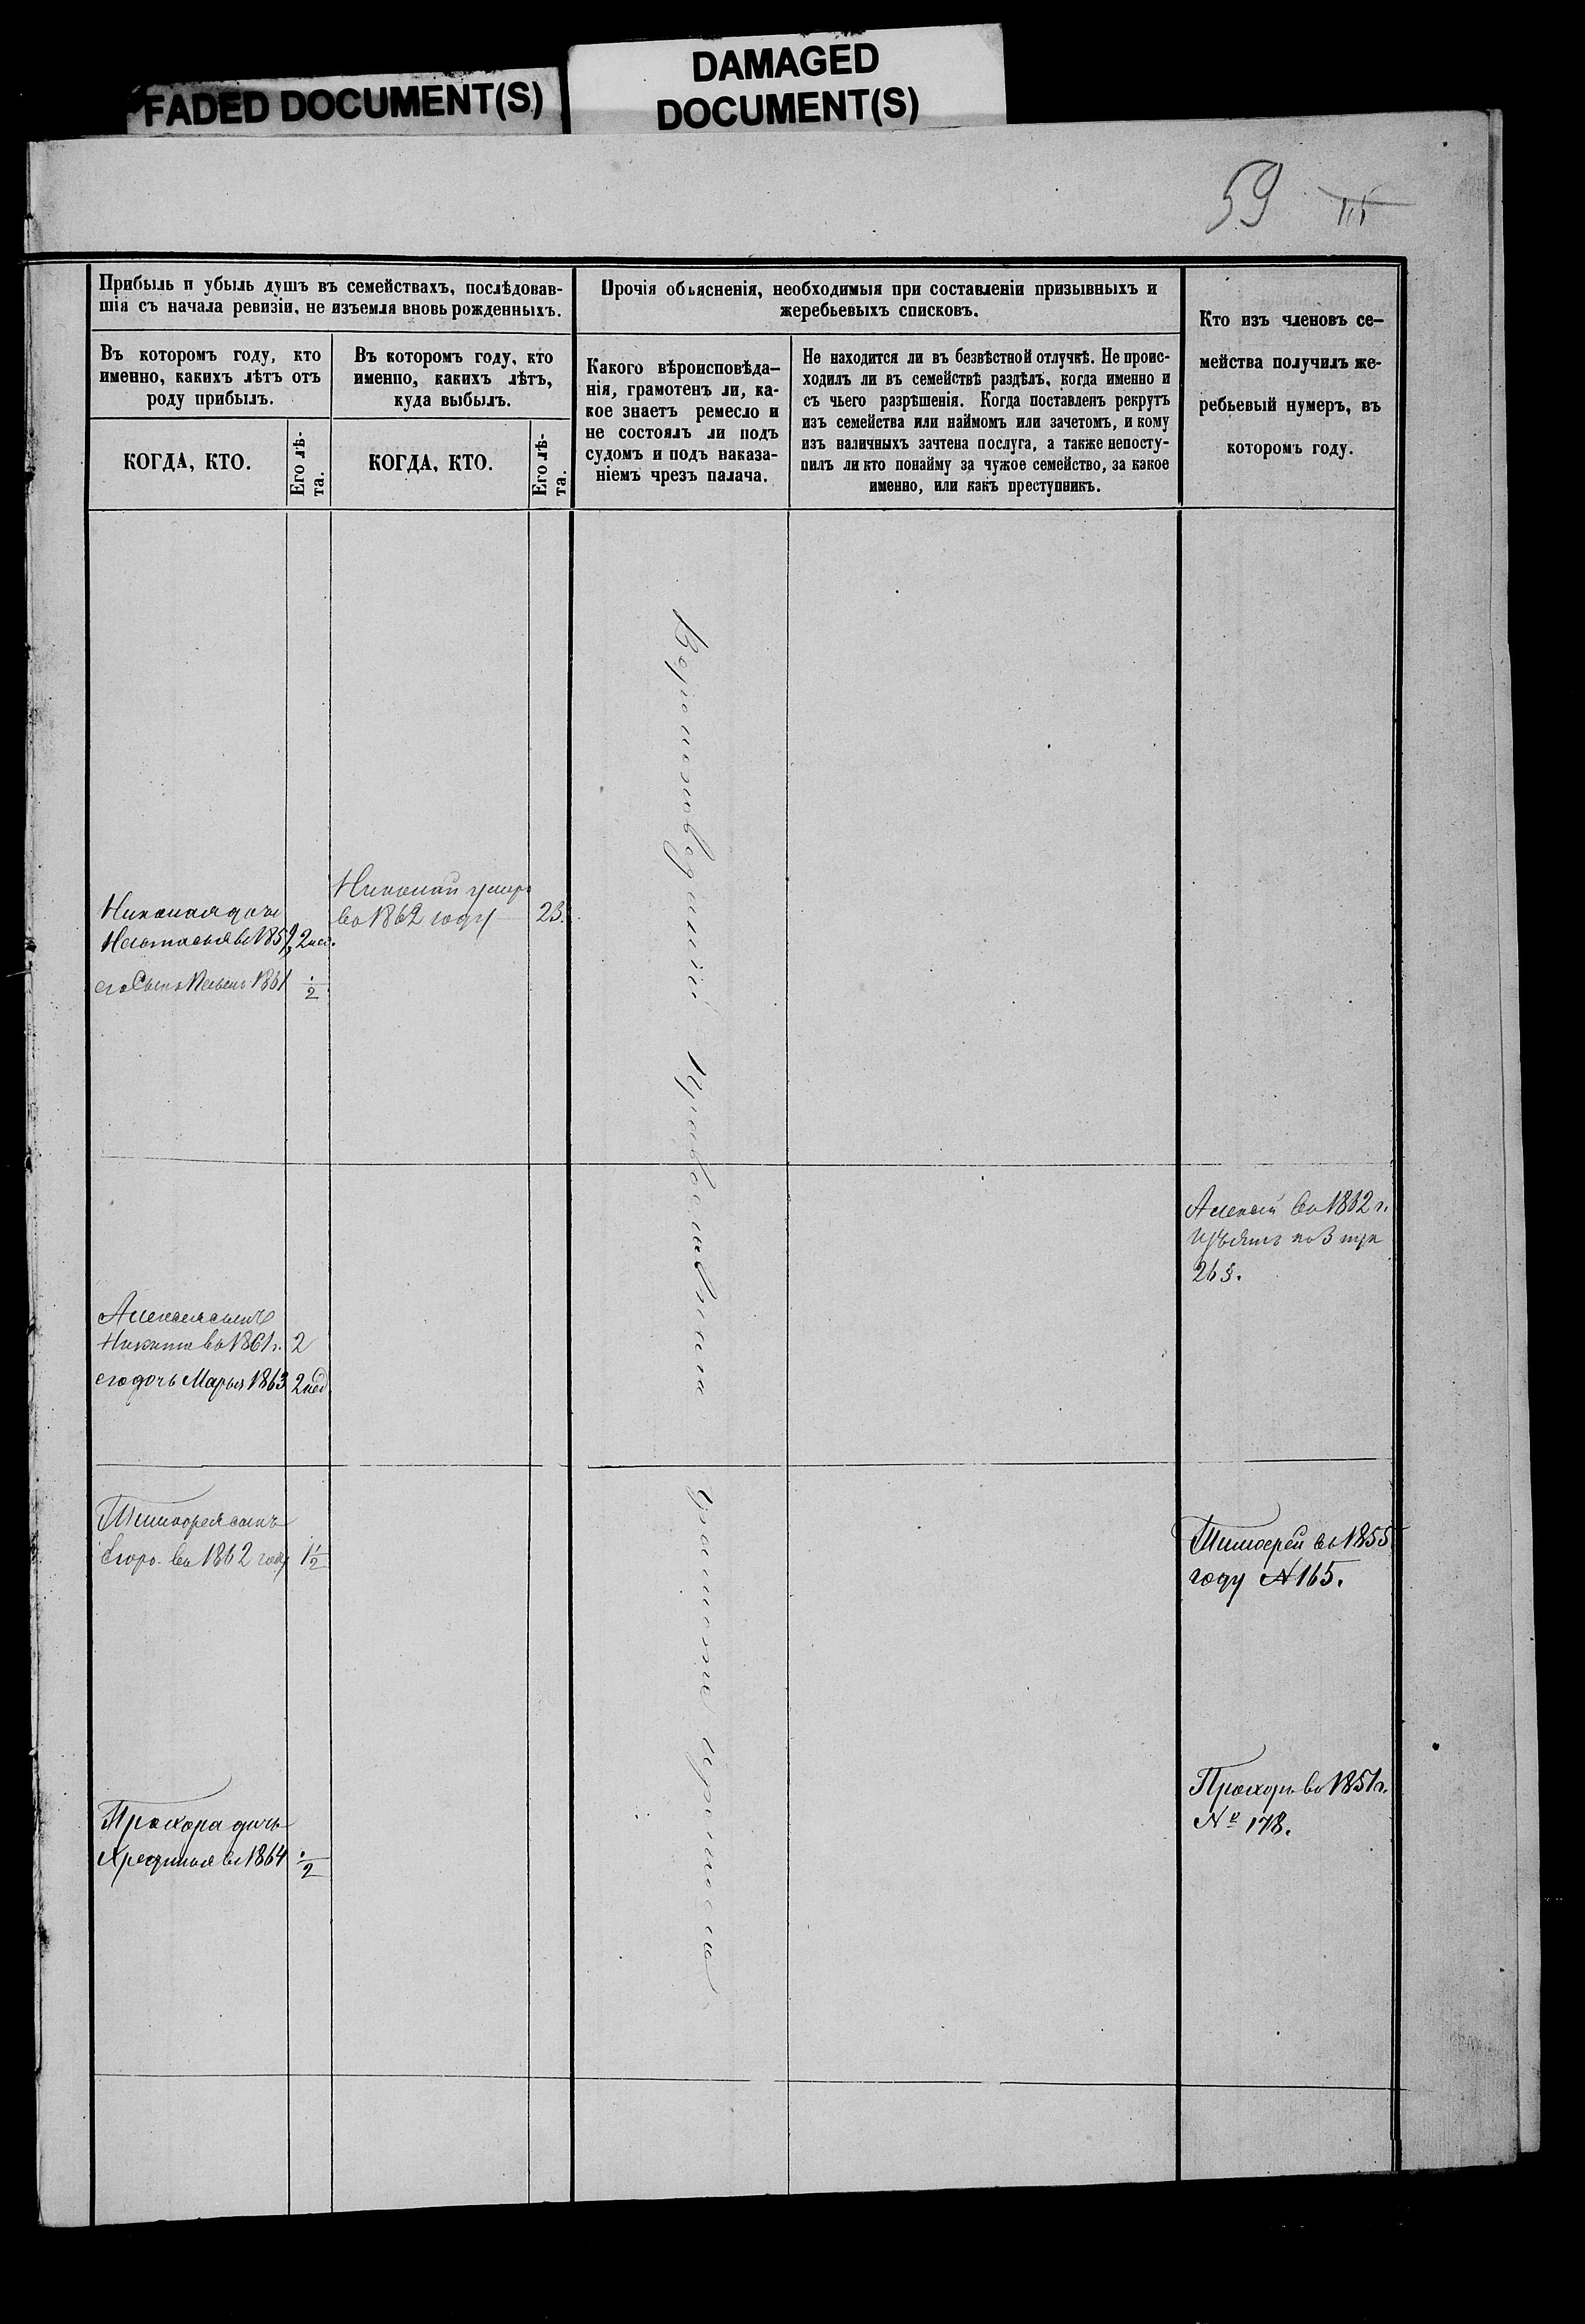 FADED DOCUMENT(S)
DAMAGED
DOCUMENT(S)
59
Прибыль и убыль душъ въ семействахъ, послѣдовав-
шія съ начала ревизіи, не изъемля вновь рожденныхъ.
Въ которомъ году, кто
именно, какихъ лѣтъ отъ
роду прибылъ.
КОГДА, КТО.
Его лѣ-
та.
Въ которомъ году, кто
именно, какихъ лѣтъ,
куда выбылъ.
КОГДА, КТО.
Его лѣ-
та.
Прочія объясненія, необходимыя при составленіи призывныхъ и
жеребьевыхъ списковъ.
Какого вѣроисповѣда-
нія, грамотенъ ли, ка-
кое знаетъ ремесло и
не состоялъ ли подъ
судомъ и подъ наказа-
ніемъ чрезъ палача.
Не находится ли въ безвѣстной отлучкѣ. Не проис-
ходилъ ли въ семействѣ раздѣлъ, когда именно и
съ чьего разрѣшенія. Когда поставленъ рекрутъ
изъ семейства или наймомъ или зачетомъ, и кому
изъ наличныхъ зачтена послуга, а также непосту-
пилъ ли кто понайму за чужое семейство, за какое
именно, или какъ преступникъ.
Кто изъ членовъ се-
мейства получилъ же-
ребьевый нумеръ, въ
которомъ году.
Николая дочь
Настасья въ 1859 2 нед.
его Сынъ 1861 1/2
Николай умеръ
во 1862 году 23.
Вероисповеданія Православнаго
Алексей во 1862 г.
изъятъ по 3 пун
26 §.
Алексея сынъ
Никита во 1861 г. 2
его дочь Марья 1863 2 нед
Тимофея сынъ
Егоръ во 1862 году 1 1/2
Тимофей во 1855
году № 165.
Прохора дочь
во 1864 1/2
Прохоръ во 1851 г.
№ 178.